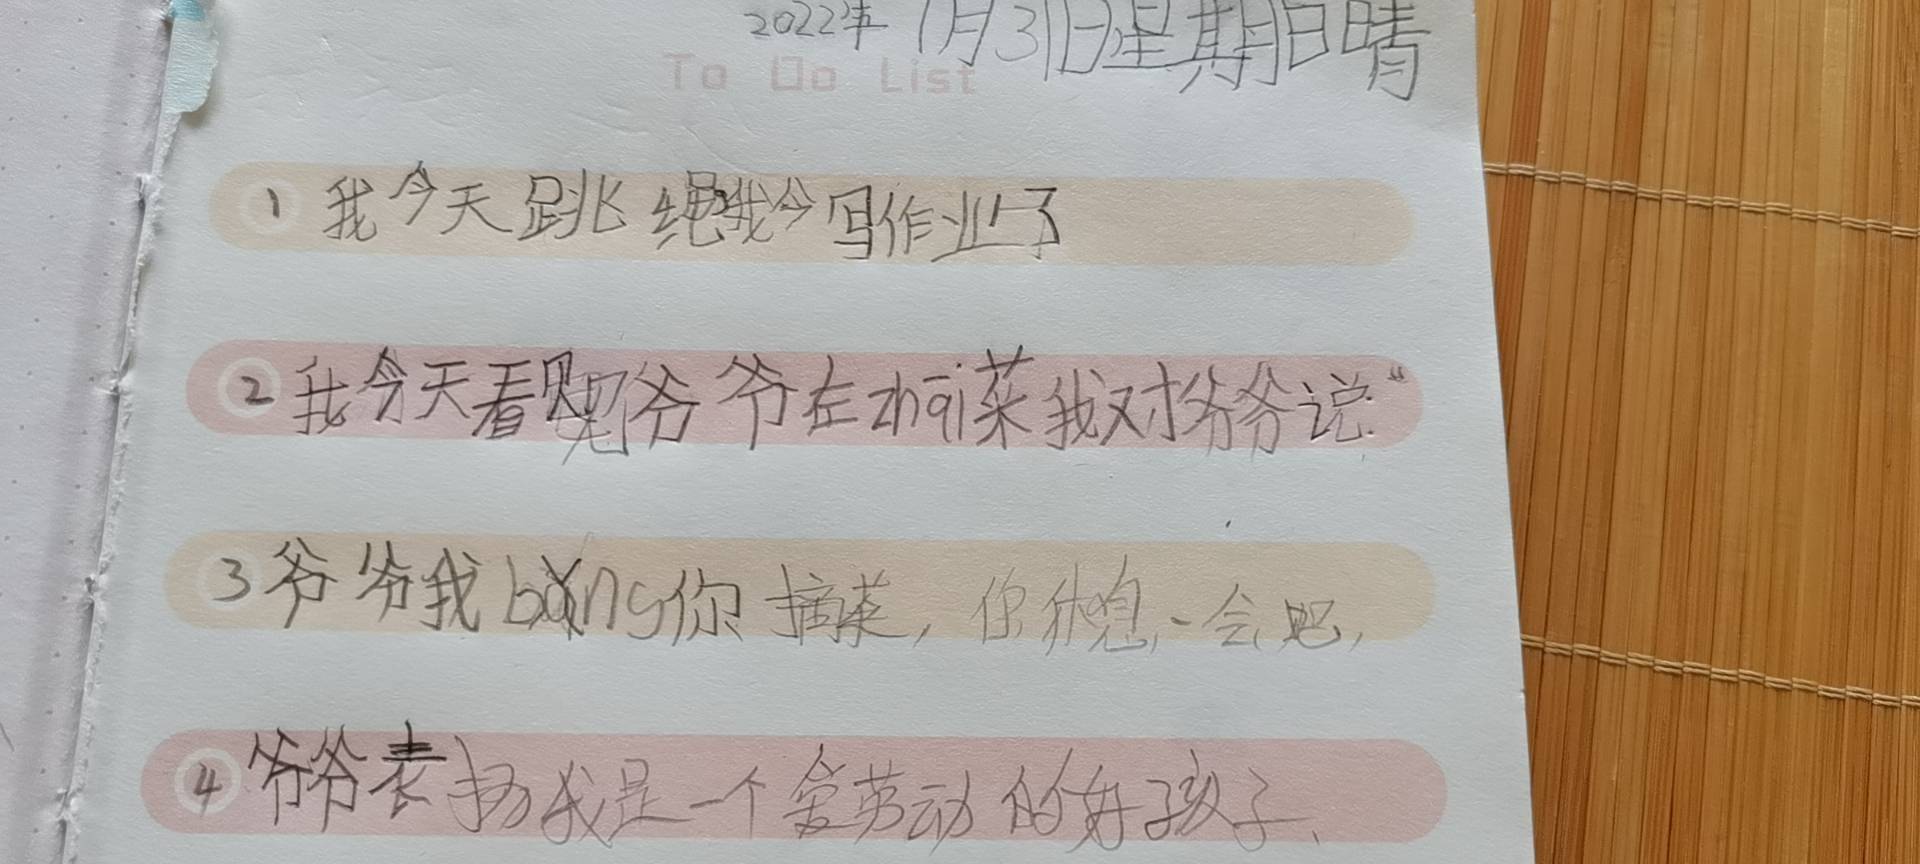 2022年 7月31日星期日晴
To Do List
1 我今天跳绳我今写作业了
2 我今天看见爷爷在zhāi菜我对爷爷说:“
3 爷爷我bāng你摘菜,你休息一会吧,
4 爷爷表扬我是一个爱劳动的好孩子、